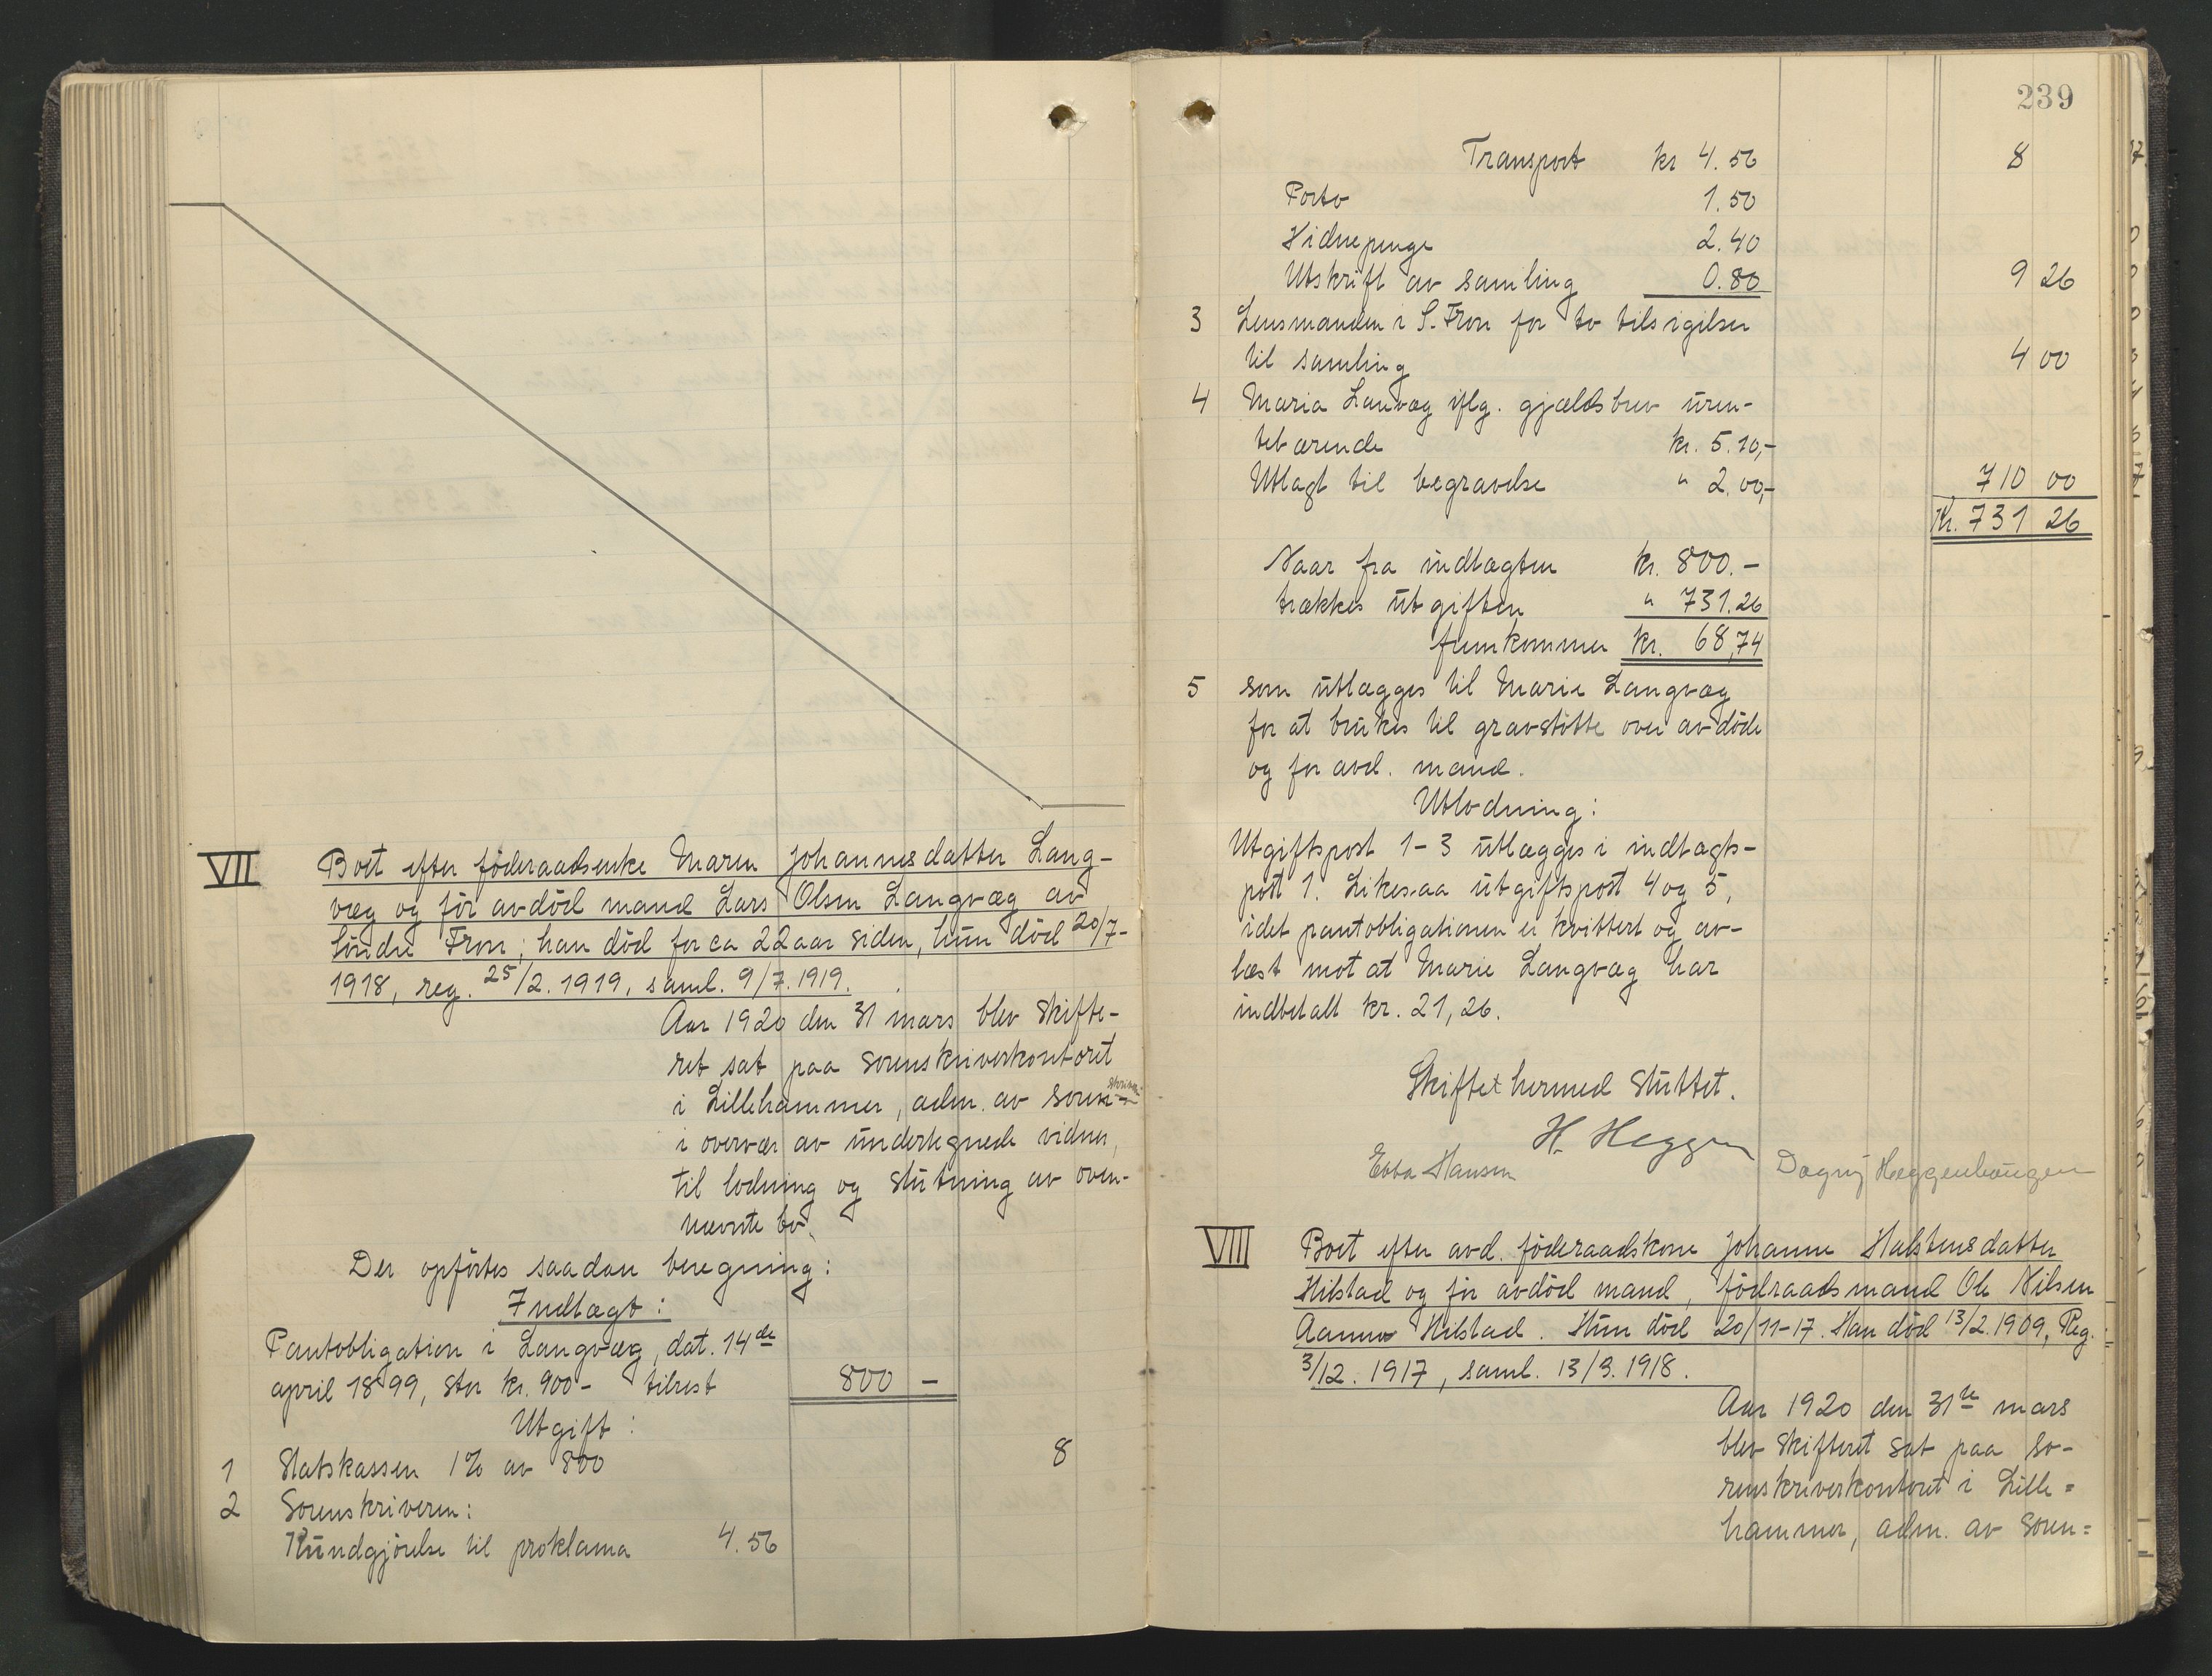 VII Boet efter föderaadsenke Maren Johannesdatter Lang-
væg og för avdöd mand Lars Olsen Langvæg av
söndre Fron; han död for ca 22 aar siden, hun död 20/7-
1918, reg. 25/2.1919, saml. 9/7.1919.
Aar 1920 den 31 mars blev skifte-
ret sat paa sorenskriverkontoret
i Lillehammer, adm. av soren-
i overvær av undertegnede vidner,
til lodning og slutning av oven-
nævnte bo.
Der opförtes saadan beregning:
Indtægt:
Pantobligation i Langvæg, dat. 14de
april 1899, stor kr. 900- tilrest 800 -
Utgift:
1 Statskassen 1% av 800 8
2 Sorenskriveren:
Kundgjörelse til proklama 4.56
239
Transport kr 4.56 8
Porto 1.50
Vidnepenge 2.40
Utskrift av samling 0.80 9 26
3 Lensmanden i S. Fron for to tilsigelser
til samling 4 00
4 Maria Lanvæg iflg. gjældsbrev uren-
tebærende kr. 5.10,-
Utlagt til begravelse " 2.00,- 710 00
Kr. 731 26
Naar fra indtægten kr. 800.-
trækkes utgiften " 731.26
fremkommer kr. 68,74
5 som utlægges til Marie Langvæg
for at brukes til gravstötte over avdöde
og for avd. mand.
Utlodning:
Utgiftspost 1-3 utlægges i indtægts-
post 1. Likesaa utgiftspost 4 og 5,
idet pantobligationen er kvittert og av-
læst mot at Marie Langvæg har
indbetalt kr. 21,26.
Skiftet hermed sluttet.
H. Heggen
Ebba Hansen Dagny Heggenhaugen
VIII Boet efter avd. föderaadskone Johanne Halstensdatter
Hilstad og för avdöd mand, födraadsmand Ole Nilsen
Aamo Hilstad. Hun död 20/11-17. Han död 13/2.1909, Reg.
3/12.1917, saml. 13/3.1918.
Aar 1920 den 31te mars
blev skifteret sat paa so-
renskriverkontoret i Lille=
hammer, adm. av soren=